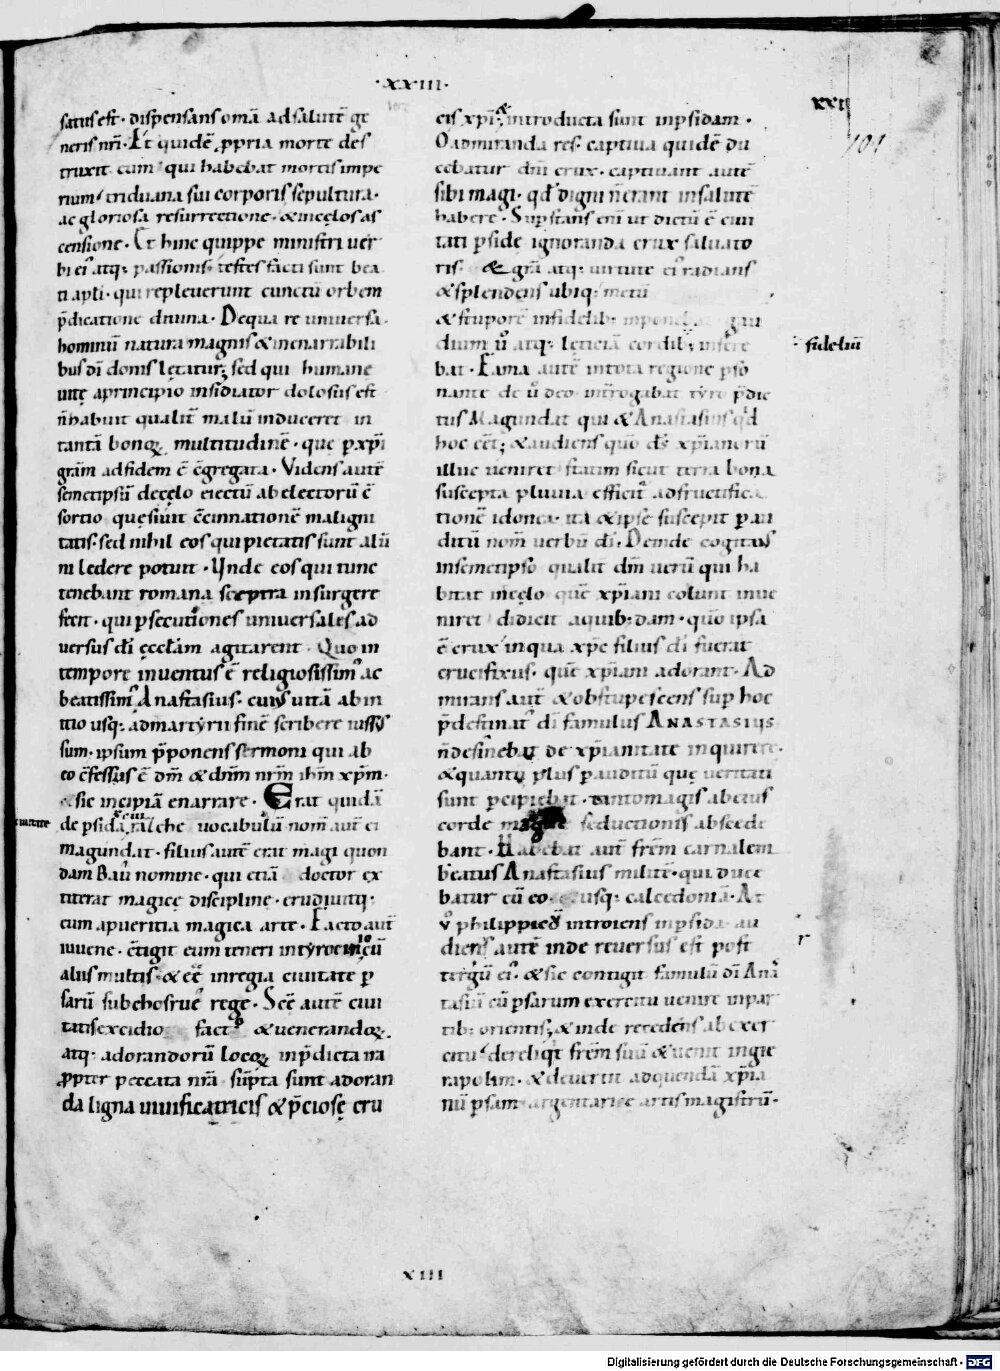 ·XXIII·
XXII
101
satus est · dispensans om̄a ad salutē ge
neris nr̄i · Et quidē ꝓpria morte des
truxit eum · qui habebat mortis impe
rium · triduana sui corporis sepultura ·
ac gloriosa resurrectione · & in cęlos as
censione · Et hinc quippe ministri ver
bi ei᾿ atq: passionis testes facti sunt bea
ti apl̄i · qui repleverunt cunctū orbem
p̄dicatione divina · De qua re universa
hominū natura magnis & inenarrabili
bus dī donis lętatur; sed qui humane
vitę a principio insidiator dolosus est
n̄ habuit qualit̄ malū induceret in
tantā bonoꝝ multitudinē · que p xp̄i
grām ad fidem ē c̄gregata · Videns autē
semetipsū de cęlo eiectū ab electorū c̄
sortio quęsivit c̄cinnationē maligni
tatis · sed nihil eos qui pietatis sunt alū
ni ledere potuit · Unde eos qui tunc
tenebant romana sceptra insurgere
fecit · qui psecutiones universales ad
versus dī ęccłam agitarent · Quo in
tempore inventus ē religiosissim᾿ ac
beatissim᾿ Anastasius · cuius vitā ab in
itio usq: ad martyrii finē scribere iussus
sum · ipsum p̄ponens sermoni qui ab
eo c̄fessus ē dm̄ & dn̄m nr̄m ihm̄ xp̄m ·
& sic incipiā enarrare · Erat quidā
de psida rasche vocabulū nom̄ aut̄ ei
magundat · filius autē erat magi quon
dam Bau nomine · qui etiā doctor ex
titerat magicę discipline · erudivitq:
eum a pueritia magica arte · Facto aut̄
iuvene · c̄tigit eum teneri in tyrocinio cū
aliis multis · & ēē in regia civitate p
sarū sub chosrue rege · Scē autē civi
tatis excidio facto & venerandoꝝ
atq: adorandorū locoꝝ in p̄dicta īra
ꝓpter peccata nr̄a sūpta sunt adoran
da ligna vivificatricis & p̄ciosę cru
cis xp̄i · & introducta sunt in psidam ·
O admiranda res · captiva quidē du
cebatur dn̄i crux · captivavit autē
sibi magi · qđ digni n̄ erant in salutē
habere · Supstans eni ut dictū ē civi
tati pside ignoranda crux salvato
ris · & grā atq: virtute ei᾿ radians
& splendens ubiq: metū
& stuporē infidelib: inponebat gau
dium v̄ atq: lęticiā cordib: insere
fideliū
bat · Fama autē in tota regione pso
nante de v̄o deo int̄rogabat tyro p̄dic
tus Magundat qui & Anastasius qđ
hoc eēt; & audiens quō dī xp̄ianorū
illuc veniret statim sicut terra bona
suscepta pluvia efficit ad fructifica
tionē idonea · ita & ipse suscepit p au
ditū nom̄ verbū dī · Deinde cogitans
in semetipso qualit̄ dm̄ verū qui ha
bitat in cęlo quē xp̄iani colunt inve
niret didicit a quib:dam · quō ipsa
ē crux in qua xp̄c filius dī fuerat
crucifixus · quē xp̄iani adorant · Ad
mirans aut̄ & obstupescens sup hoc
p̄destinat᾿ dī famulus ANASTASIUS
n̄ desinebat de xp̄ianitate inquirere ·
& quanto plus p auditū quę veritati
sunt pcipiebat · tanto magis ab eius
corde magicę seductionis abscede
bant · Habebat aut̄ frēm carnalem
beatus Anastasius militē · qui duce
batur cū eo usq: calcedoniā · At
v̄ philippico introiens in psida au
diens autē inde reversus est post
tergū ei᾿ · & sic contigit famulū dī Ana
tasiū cū psarum exercitu venire in par
tib: orientis; & inde recedens ab exer
citu dereliqt frēm suū & venit in gie
rapolim · & devertit ad quendā xp̄ia
nū psam argentarie artis magistrū ·
XIII